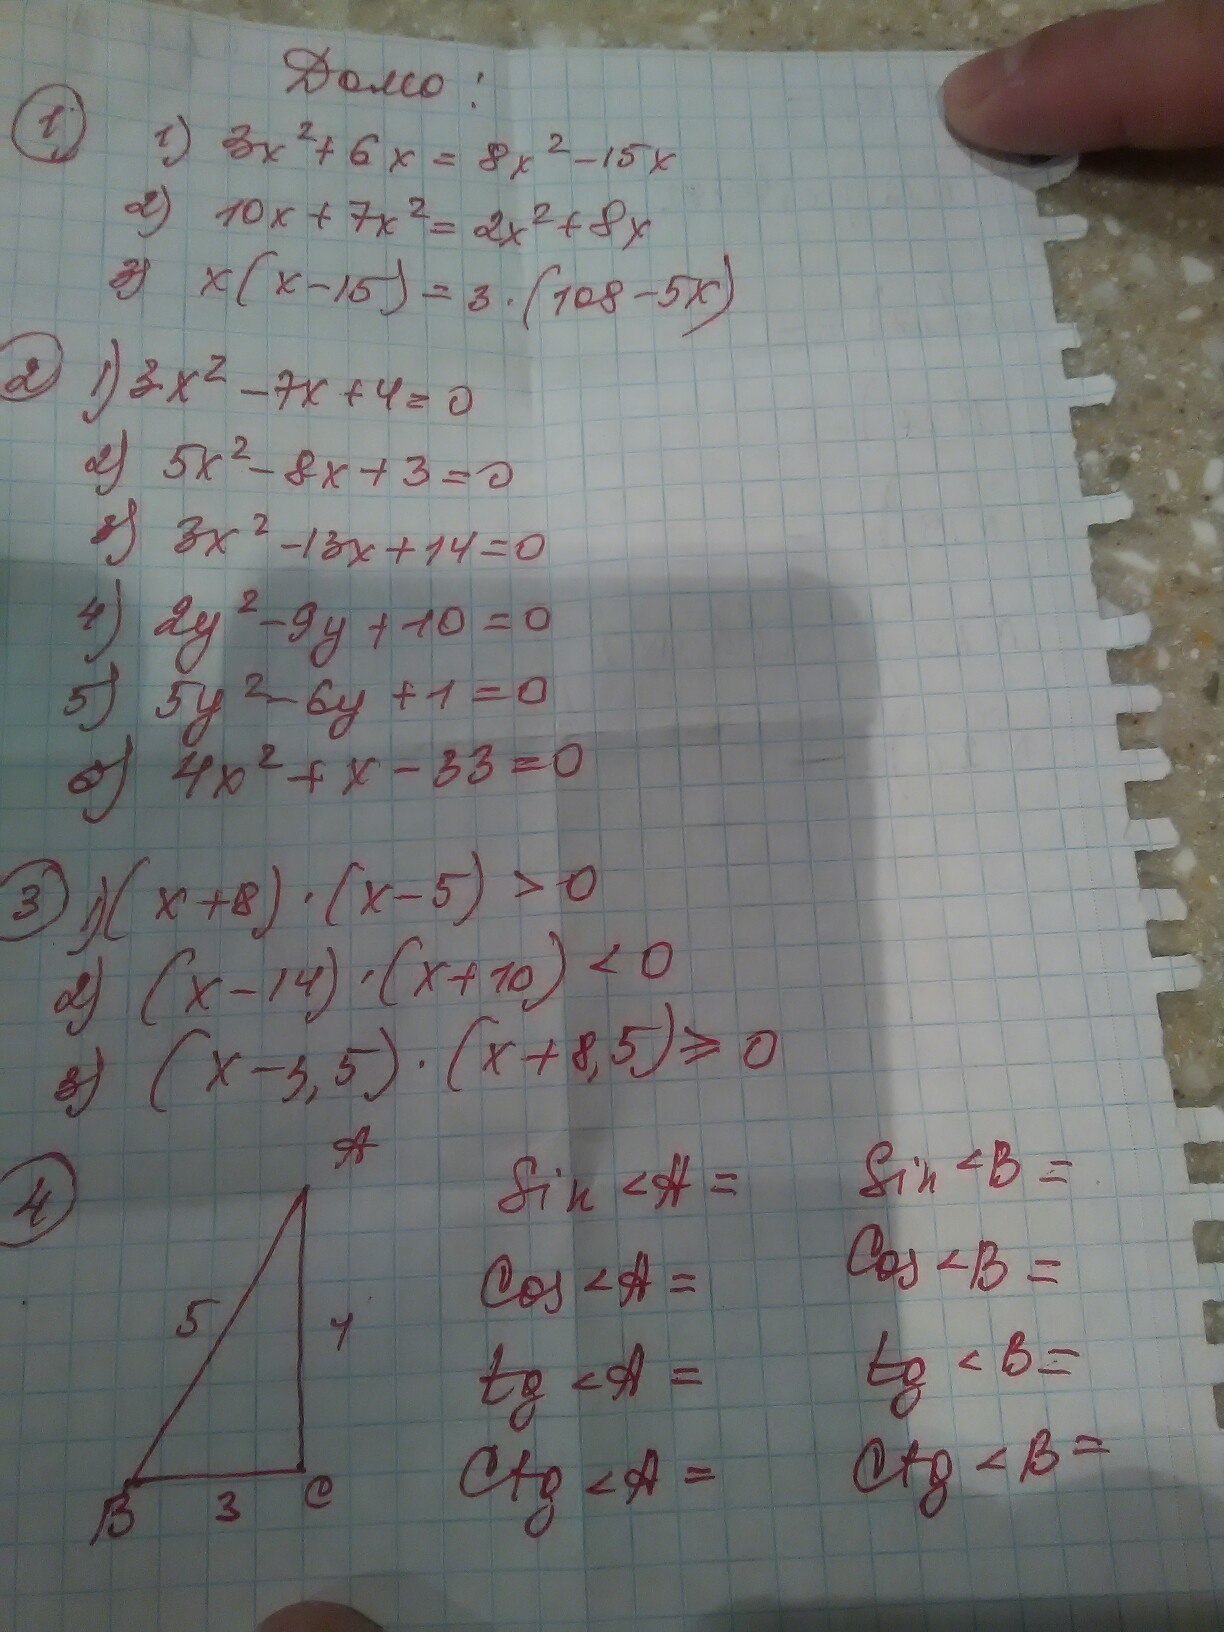 Домо:
1) 1) 3x²+6x=8x²-15x
2) 10x+7x²=2x²+8x
3) x(x-15)=3·(108-5x)
2) 1) 3x²-7x+4=0
2) 5x²-8x+3=0
3) 3x²-13x+14=0
4) 2y²-9y+10=0
5) 5y²-6y+1=0
6) 4x²+x-33=0
3) 1) (x+8)·(x-5)>0
2) (x-14)·(x+10)<0
3) (x-3,5)·(x+8,5)≥0
4) A
Sin <A = Sin <B =
Cos <A = Cos <B =
5 4
tg <A = tg <B =
Ctg <A = Ctg <B =
B 3 C